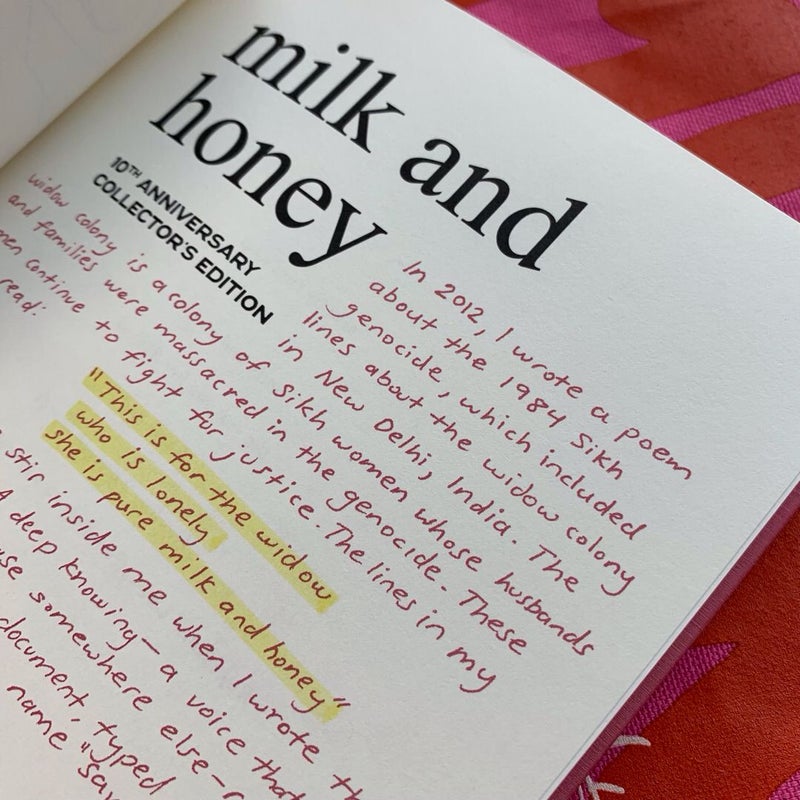 milk and
honey
10TH ANNIVERSARY
COLLECTOR'S EDITION
In 2012, I wrote a poem
about the 1984 Sikh
genocide, which included
lines about the widow colony
in New Delhi, India. The
widow colony is a colony of Sikh women whose husbands
and families were massacred in the genocide. These
continue to fight for justice. The lines in my
read:
"This is for the widow
who is lonely
she is pure milk and honey"
stir inside me when I wrote
A deep knowing— a voice that
somewhere else—
document, typed
name